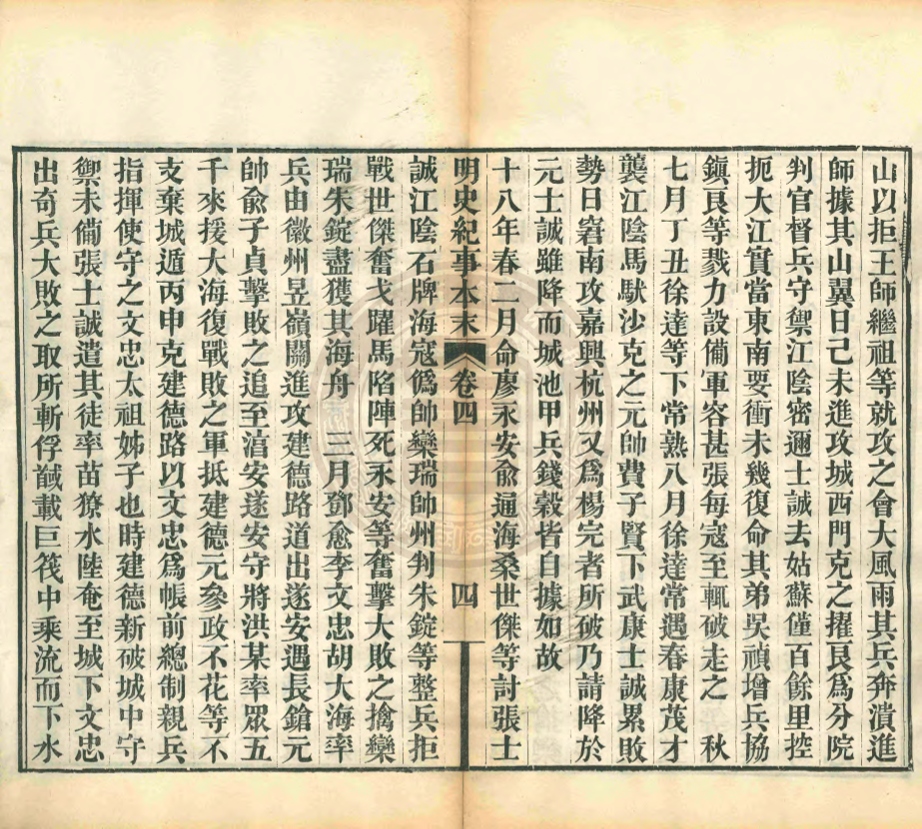 山以拒王師繼祖等就攻之會大風雨其兵奔潰進
師據其山翼日己未進攻城西門克之擢良爲分院
判官督兵守禦江陰密邇士誠去姑蘇僅百餘里控
扼大江實當東南要衝未幾復命其弟吳禎增兵協
鎭良等戮力設備軍容甚張每寇至輒破走之　秋
七月丁丑徐達等下常熟八月徐達常遇春康茂才
襲江陰馬馱沙克之元帥費子賢下武康士誠累敗
勢日窘南攻嘉興杭州又爲楊完者所破乃請降於
元士誠雖降而城池甲兵錢穀皆自據如故
十八年春二月命廖永安俞通海桑世傑等討張士
明史紀事本末　卷四　四
誠江陰石牌海寇僞帥欒瑞帥州判朱錠等整兵拒
戰世傑奮戈躍馬陷陣死永安等奮擊大敗之擒欒
瑞朱錠盡獲其海舟　三月鄧愈李文忠胡大海率
兵由徽州昱嶺關進攻建德路道出遂安遇長鎗元
帥俞子貞擊敗之追至淳安遂安守將洪某率眾五
千來援大海復戰敗之軍抵建德元參政不花等不
支棄城遁丙申克建德路以文忠爲帳前總制親兵
指揮使守之文忠太祖姊子也時建德新破城中守
禦未備張士誠遣其徒率苗獠水陸奄至城下文忠
出奇兵大敗之取所斬俘馘載巨筏中乘流而下水